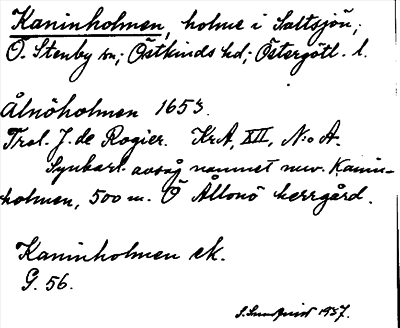 Kaninholmen, holme i Saltsjön;
Ö. Stenby sn; Östkinds hd; Östergötl. l.
Ålnöholmen 1653.
Trol. J. de Rogier. KrA, XII, N:o A.
Synbart. avsåg namnet nuv. Kanin-
holmen, 500 m. Ö Ållonö herrgård.
Kaninholmen ek.
G. 56.
S. Lundqvist 1937.